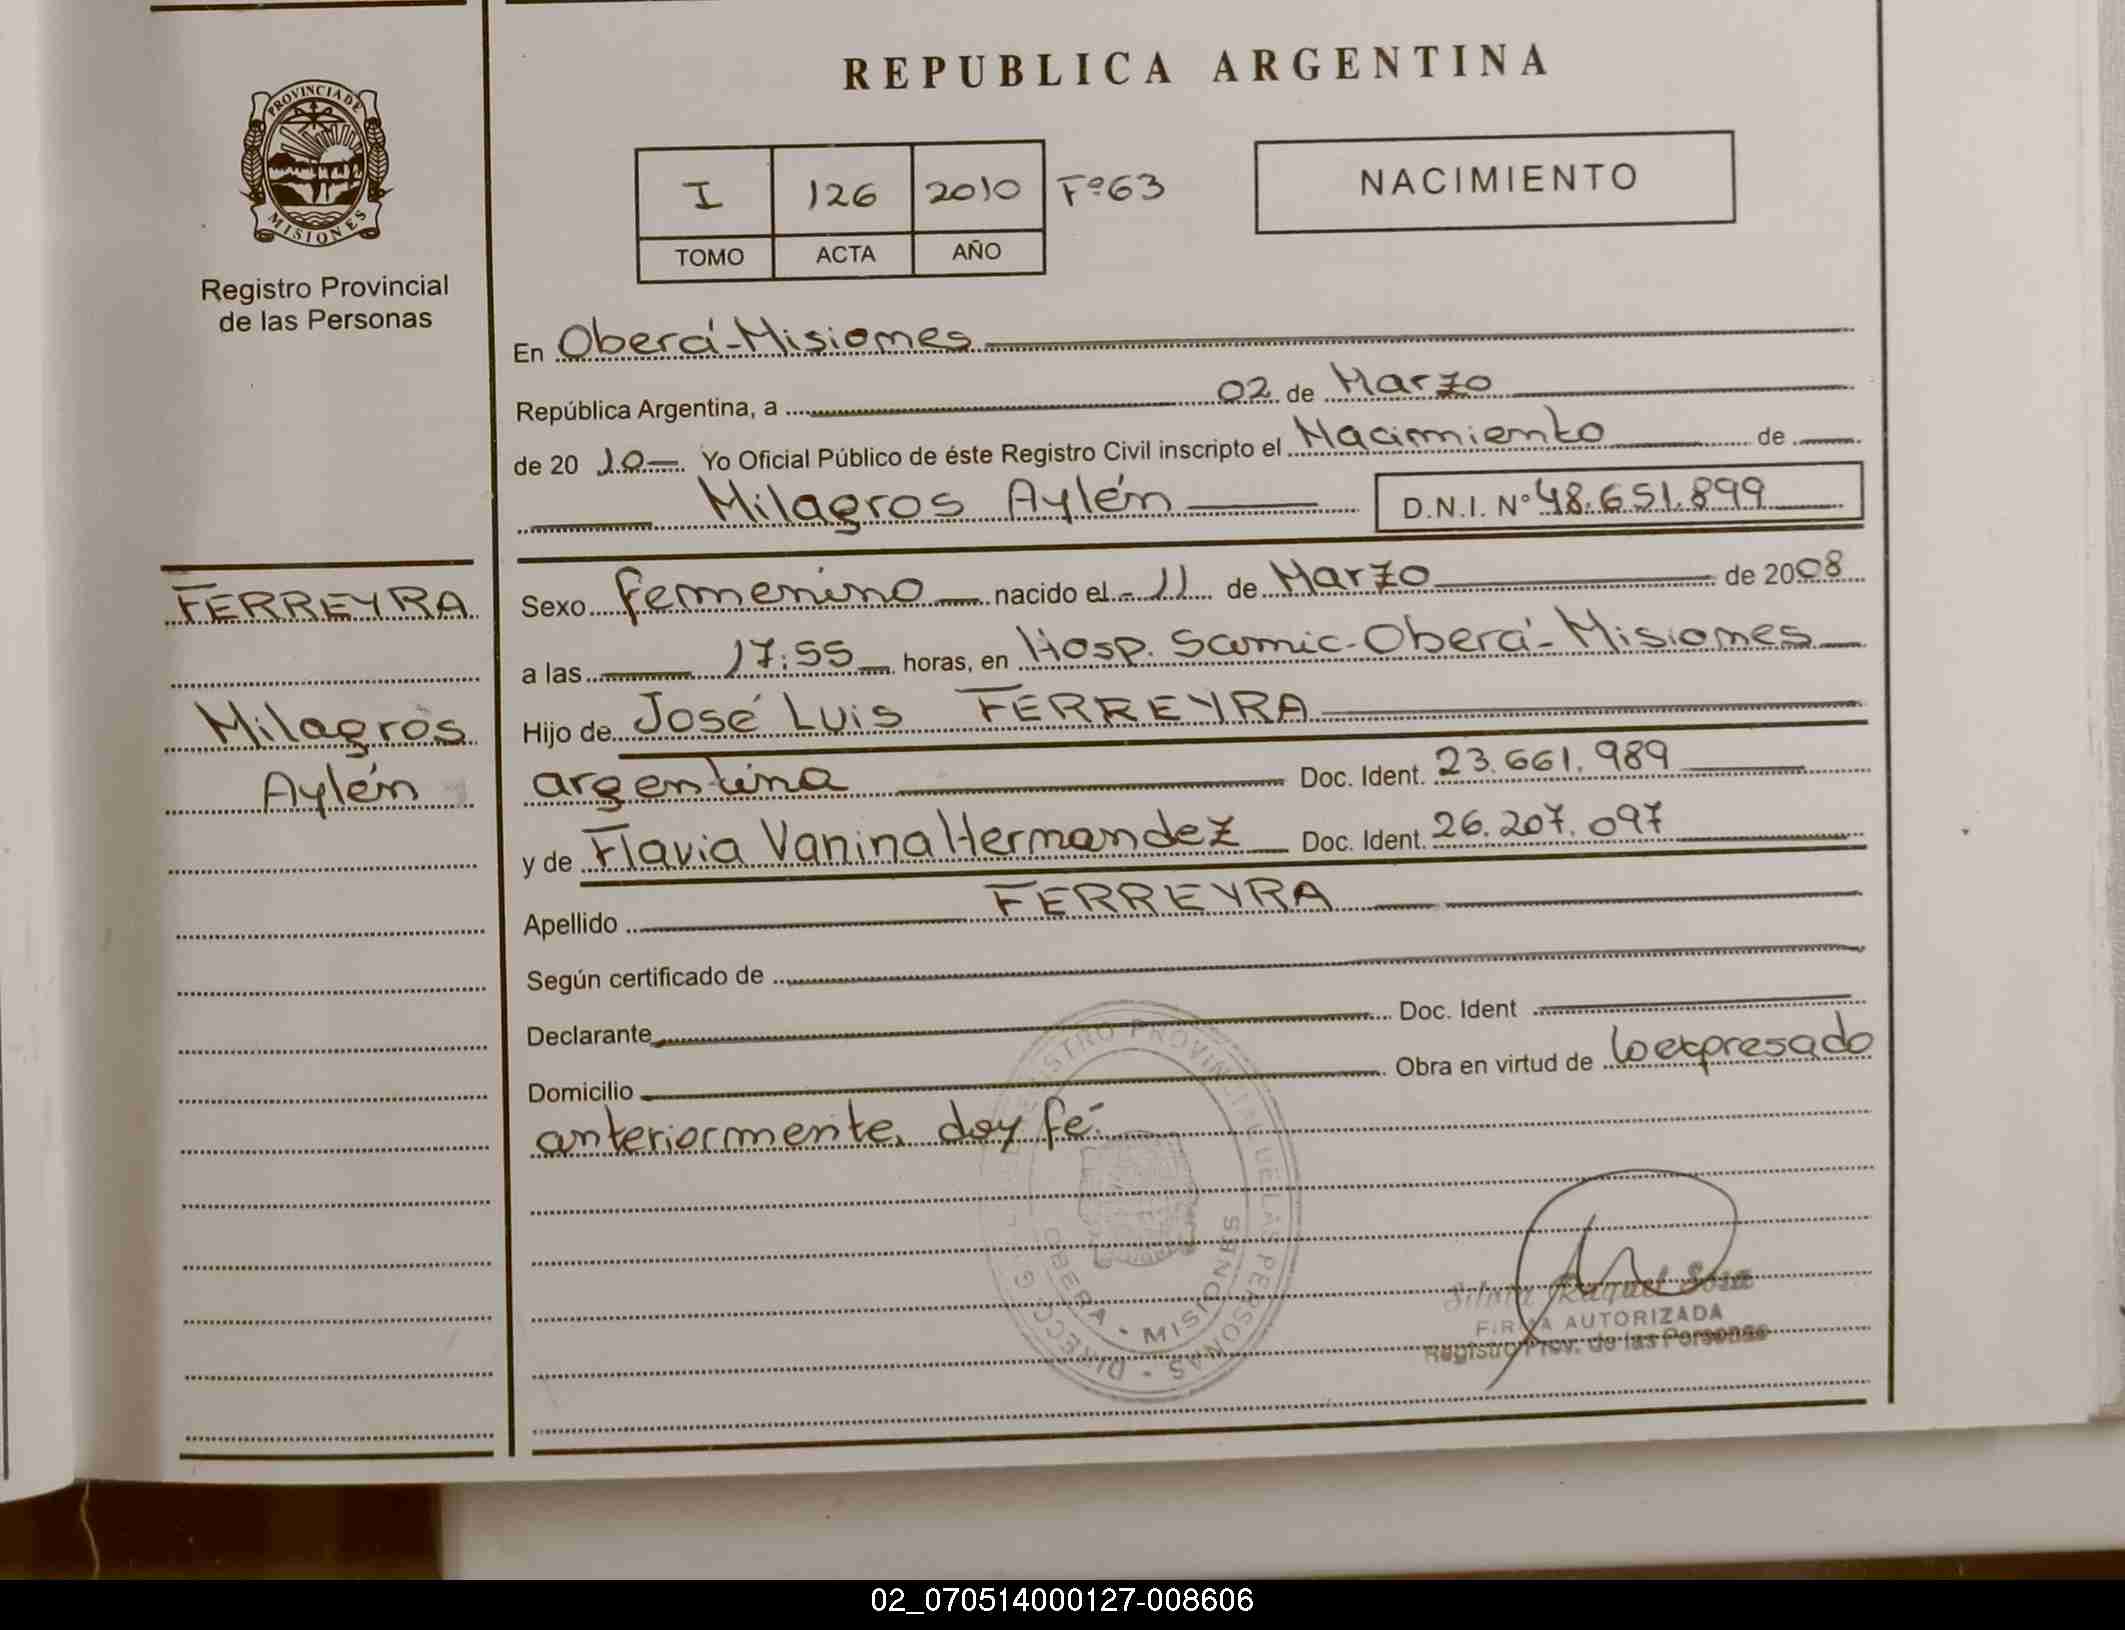 REPUBLICA ARGENTINA
PROVINCIA DE
MISIONES
Registro Provincial
de las Personas
I 126 2010 Fº63
TOMO ACTA AÑO
NACIMIENTO
En Oberá-Misiones
República Argentina, a 02 de Marzo
de 20 10 Yo Oficial Público de éste Registro Civil inscripto el Nacimiento de
Milagros Aylén D.N.I. Nº 48.651.899
FERREYRA
Milagros
Aylén
Sexo femenino nacido el 11 de Marzo de 2008
a las 17:55 horas, en Hosp. Samic-Oberá-Misiones
Hijo de José Luis FERREYRA
argentina Doc. Ident. 23.661.989
y de Flavia Vanina Hernandez Doc. Ident. 26.207.097
Apellido FERREYRA
Según certificado de
Declarante Doc. Ident
Domicilio Obra en virtud de lo expresado
anteriormente, doy fé.
REGISTRO PROVINCIAL DE LAS PERSONAS
OBERA • MISIONES
Silvia Raquel Sosa
FIRMA AUTORIZADA
Registro Prov. de las Personas
02_070514000127-008606